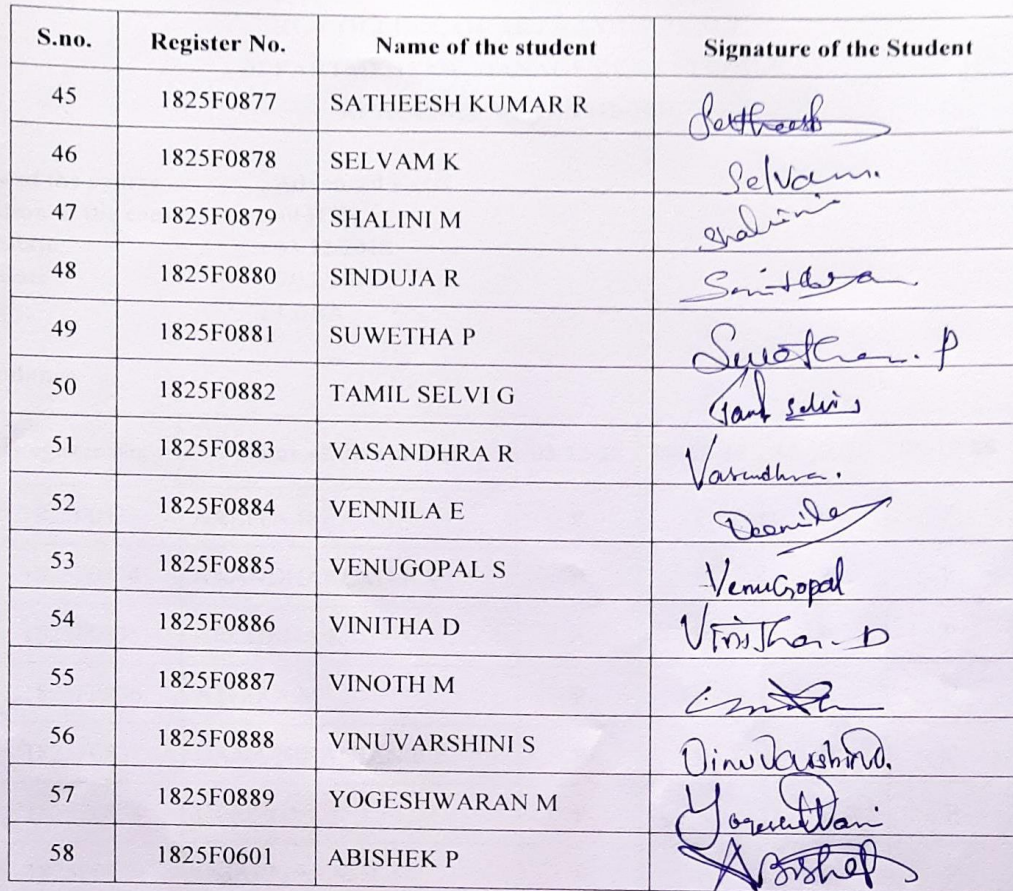 S.no. Register No. Name of the student Signature of the Student
45 1825F0877 SATHEESH KUMAR R Satheesh
46 1825F0878 SELVAM K Selvam.
47 1825F0879 SHALINI M Shalini
48 1825F0880 SINDUJA R
49 1825F0881 SUWETHA P Suwetha. P
50 1825F0882 TAMIL SELVI G Tamil selvi
51 1825F0883 VASANDHRA R Vasundhra.
52 1825F0884 VENNILA E
53 1825F0885 VENUGOPAL S VenuGopal
54 1825F0886 VINITHA D Vinitha. D
55 1825F0887 VINOTH M
56 1825F0888 VINUVARSHINI S Vinuvarshini.
57 1825F0889 YOGESHWARAN M
58 1825F0601 ABISHEK P Abishek